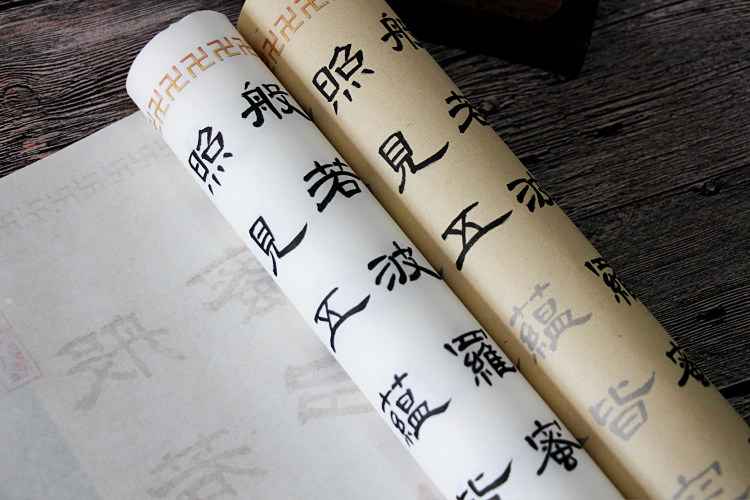 般若波羅蜜
照見五蘊皆空
般若波羅蜜
照見五蘊皆